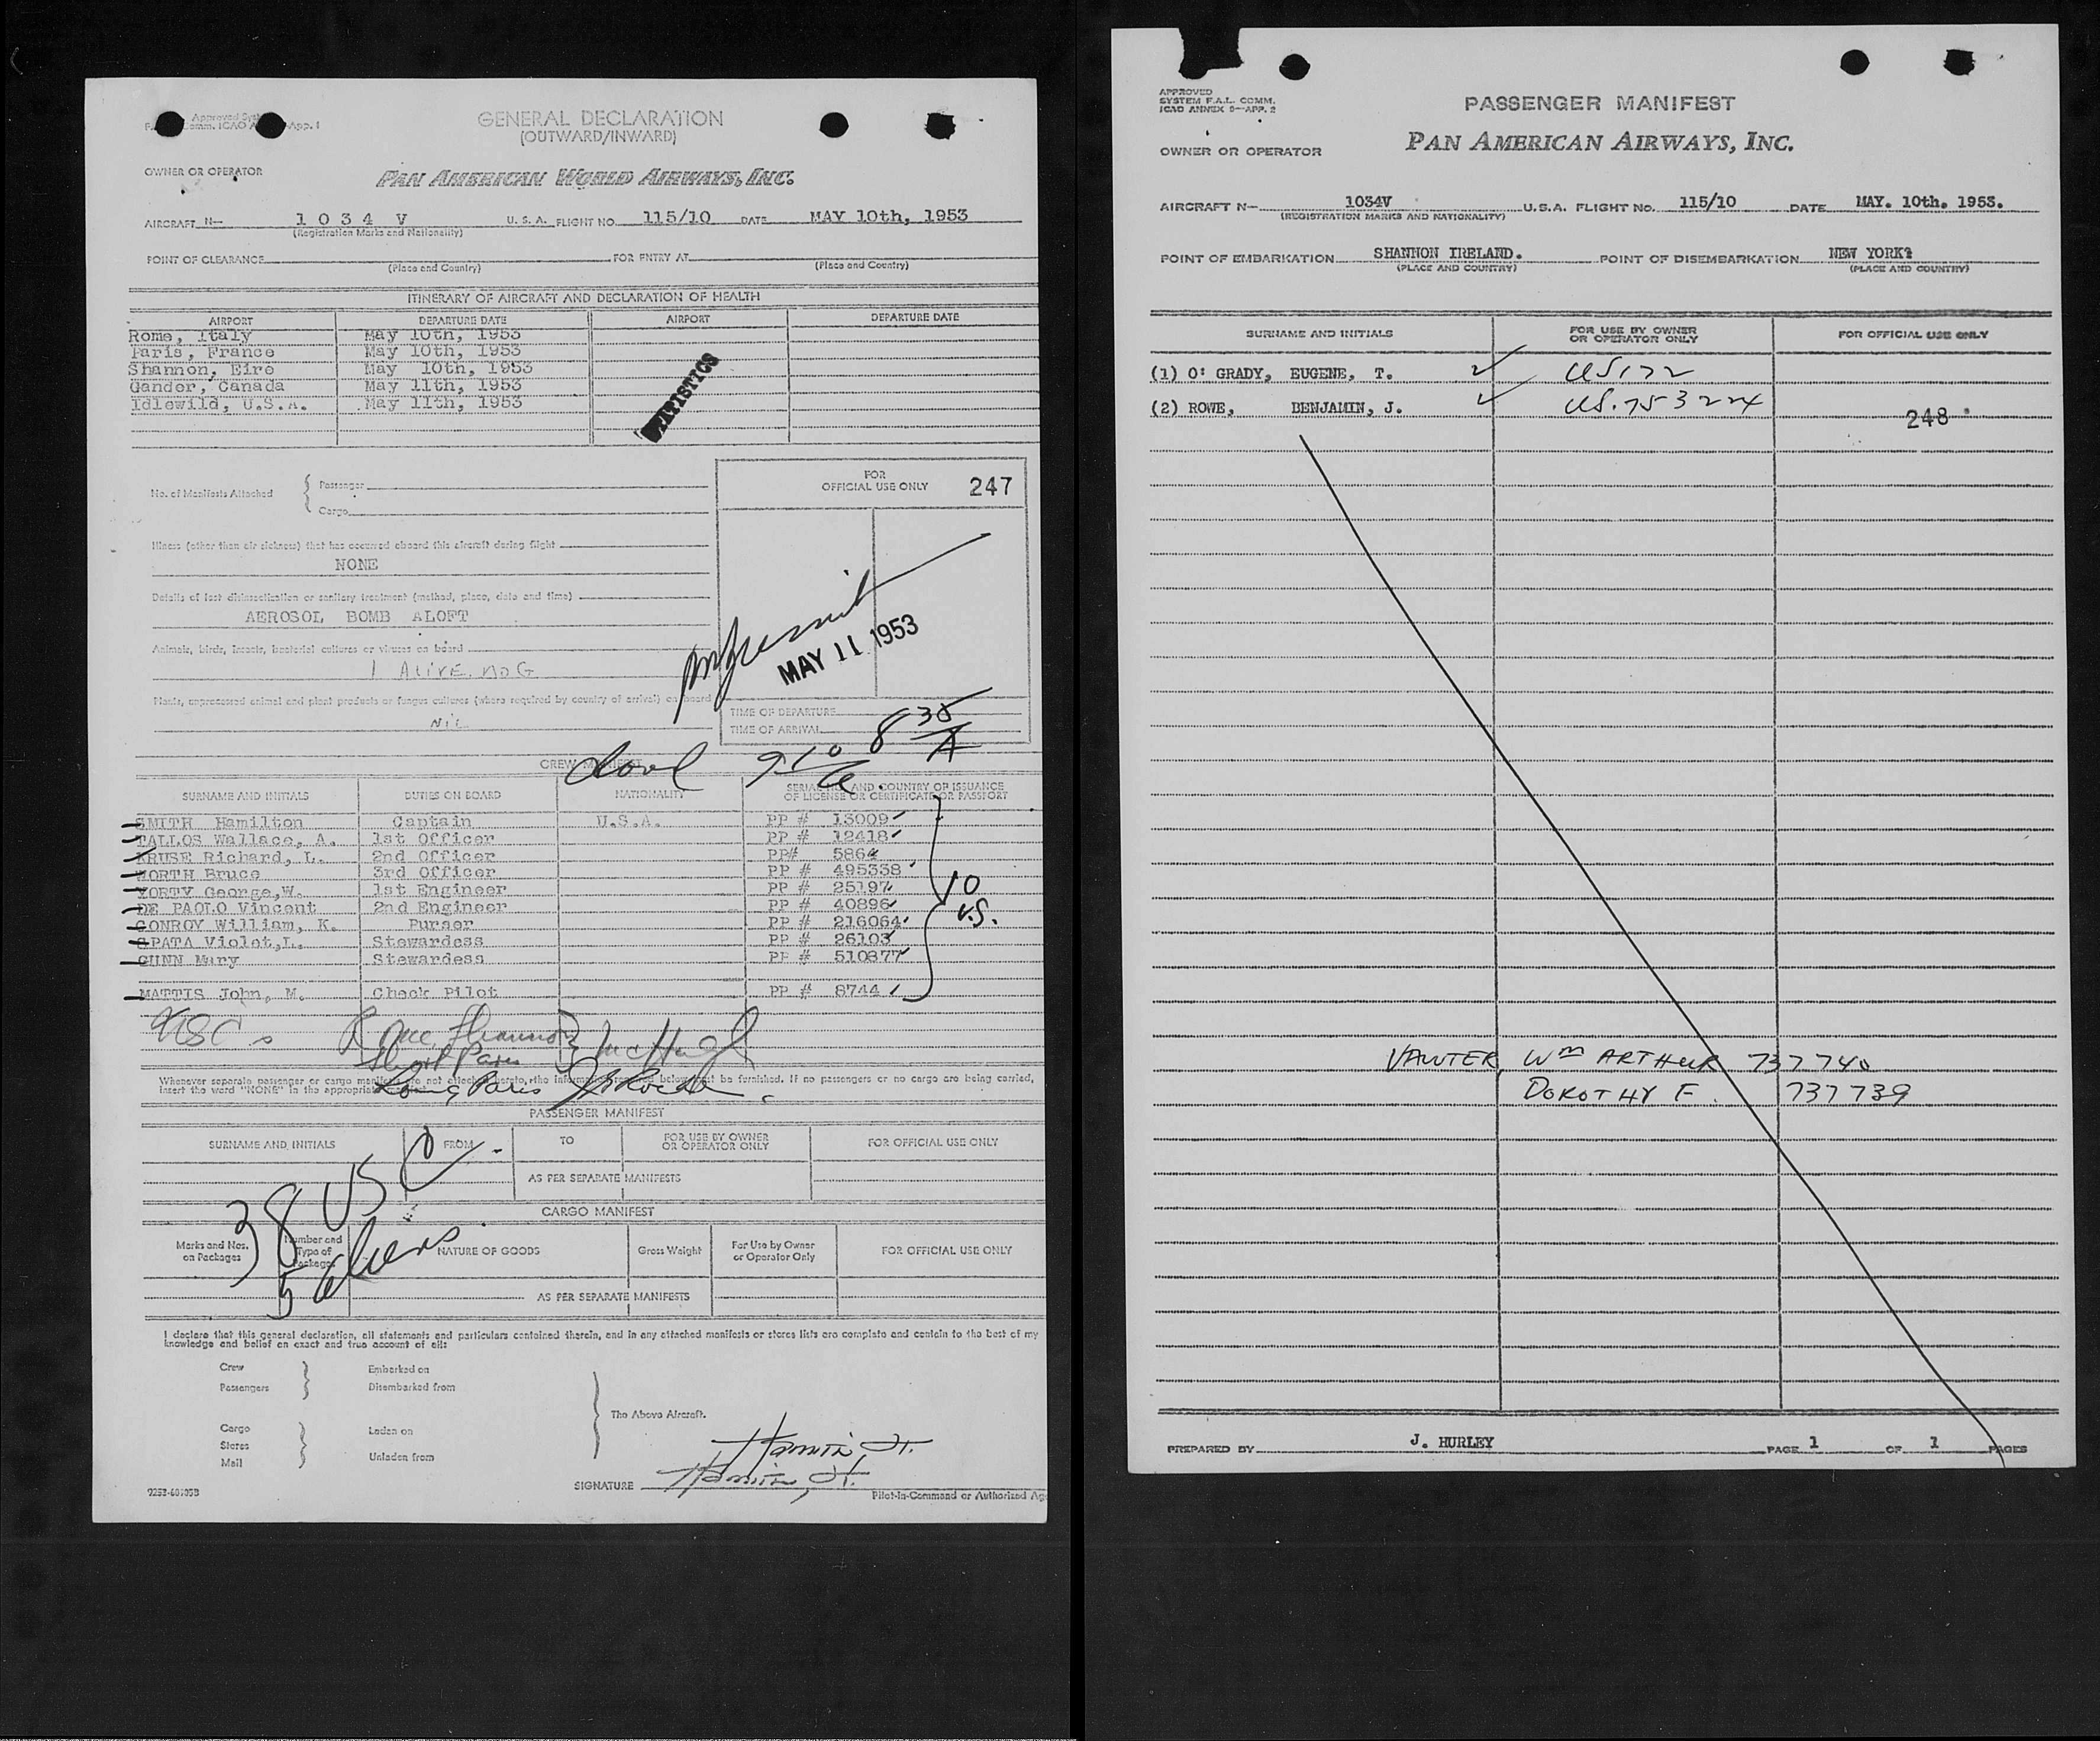 Approved System
Comm. ICAO App. 1
GENERAL DECLARATION
(OUTWARD/INWARD)
OWNER OR OPERATOR PAN AMERICAN WORLD AIRWAYS, INC.
AIRCRAFT N— 1 0 3 4 V U. S. A. FLIGHT NO. 115/10 DATE MAY 10th, 1953
(Registration Marks and Nationality)
POINT OF CLEARANCE FOR ENTRY AT
(Place and Country) (Place and Country)
ITINERARY OF AIRCRAFT AND DECLARATION OF HEALTH
AIRPORT DEPARTURE DATE AIRPORT DEPARTURE DATE
Rome, Italy May 10th, 1953
Paris, France May 10th, 1953
Shannon, Eire May 10th, 1953
Gander, Canada May 11th, 1953
Idlewild, U.S.A. May 11th, 1953
STATISTICS
No. of Manifests Attached { Passenger
Cargo
FOR
OFFICIAL USE ONLY 247
Illness (other than air sickness) that has occurred aboard this aircraft during flight
NONE
Details of last disinsectization or sanitary treatment (method, place, date and time)
AEROSOL BOMB ALOFT
Animals, birds, insects, bacterial cultures or viruses on board
1 ALIVE. DOG
MAY 11 1953
Plants, unprocessed animal and plant products or fungus cultures (where required by country of arrival) on board
NIL
TIME OF DEPARTURE
TIME OF ARRIVAL 8 35 A
CREW MANIFEST
910
SURNAME AND INITIALS DUTIES ON BOARD NATIONALITY SERIAL NO. AND COUNTRY OF ISSUANCE OF LICENSE OR CERTIFICATE OR PASSPORT
SMITH Hamilton Captain U.S.A. PP # 13009
TALLOS Wallace, A. 1st Officer PP # 12418
KRUSE Richard, L. 2nd Officer PP# 5864
WORTH Bruce 3rd Officer PP # 495338
VORTY George,W. 1st Engineer PP # 25197
DE PAOLO Vincent 2nd Engineer PP # 40896
CONROY William, K. Purser PP # 216064
SPATA Violet,L. Stewardess PP # 26103
GUNN Mary Stewardess PP # 510877
MATTIS John, M. Check Pilot PP # 8744
10
U.S.
Whenever separate passenger or cargo manifests are not attached hereto, the information required below must be furnished. If no passengers or no cargo are being carried,
insert the word "NONE" in the appropriate
PASSENGER MANIFEST
SURNAME AND INITIALS FROM TO FOR USE BY OWNER OR OPERATOR ONLY FOR OFFICIAL USE ONLY
AS PER SEPARATE MANIFESTS
38 USC
5 aliens
CARGO MANIFEST
Marks and Nos. on Packages Number and Type of Packages NATURE OF GOODS Gross Weight For Use by Owner or Operator Only FOR OFFICIAL USE ONLY
AS PER SEPARATE MANIFESTS
I declare that this general declaration, all statements and particulars contained therein, and in any attached manifests or stores lists are complete and contain to the best of my
knowledge and belief an exact and true account of all:
Crew Embarked on
Passengers Disembarked from
The Above Aircraft.
Cargo Laden on
Stores
Mail Unladen from
SIGNATURE
Pilot-in-Command or Authorized
APPROVED
SYSTEM F.A.L. COMM.
ICAO ANNEX 9—APP. 2
PASSENGER MANIFEST
OWNER OR OPERATOR PAN AMERICAN AIRWAYS, INC.
AIRCRAFT N— 1034V U.S.A. FLIGHT NO. 115/10 DATE MAY. 10th. 1953.
(REGISTRATION MARKS AND NATIONALITY)
POINT OF EMBARKATION SHANNON IRELAND. POINT OF DISEMBARKATION NEW YORK?
(PLACE AND COUNTRY) (PLACE AND COUNTRY)
SURNAME AND INITIALS FOR USE BY OWNER OR OPERATOR ONLY FOR OFFICIAL USE ONLY
(1) O: GRADY, EUGENE, T. US172
(2) ROWE, BENJAMIN, J. US.753224
248
VAWTER, Wm ARTHUR 737740
DOROTHY F. 737739
PREPARED BY J. HURLEY PAGE 1 OF 1 PAGES